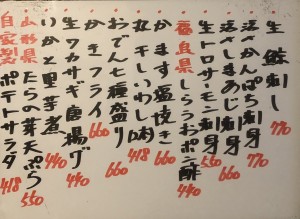 生鯨刺し 770
活〆かんぱち刺身 770
活〆しまあじ刺身 660
生トロサーモン刺身 550
福島県しらうおポン酢 440
かます塩焼き 660
丸干しいわし 418
おでん七種盛り 660
かきフライ 660
生ワカサギ唐揚げ 440
いかと里芋煮 440
山形県たらの芽天ぷら 440
自家製ポテトサラダ 418 550